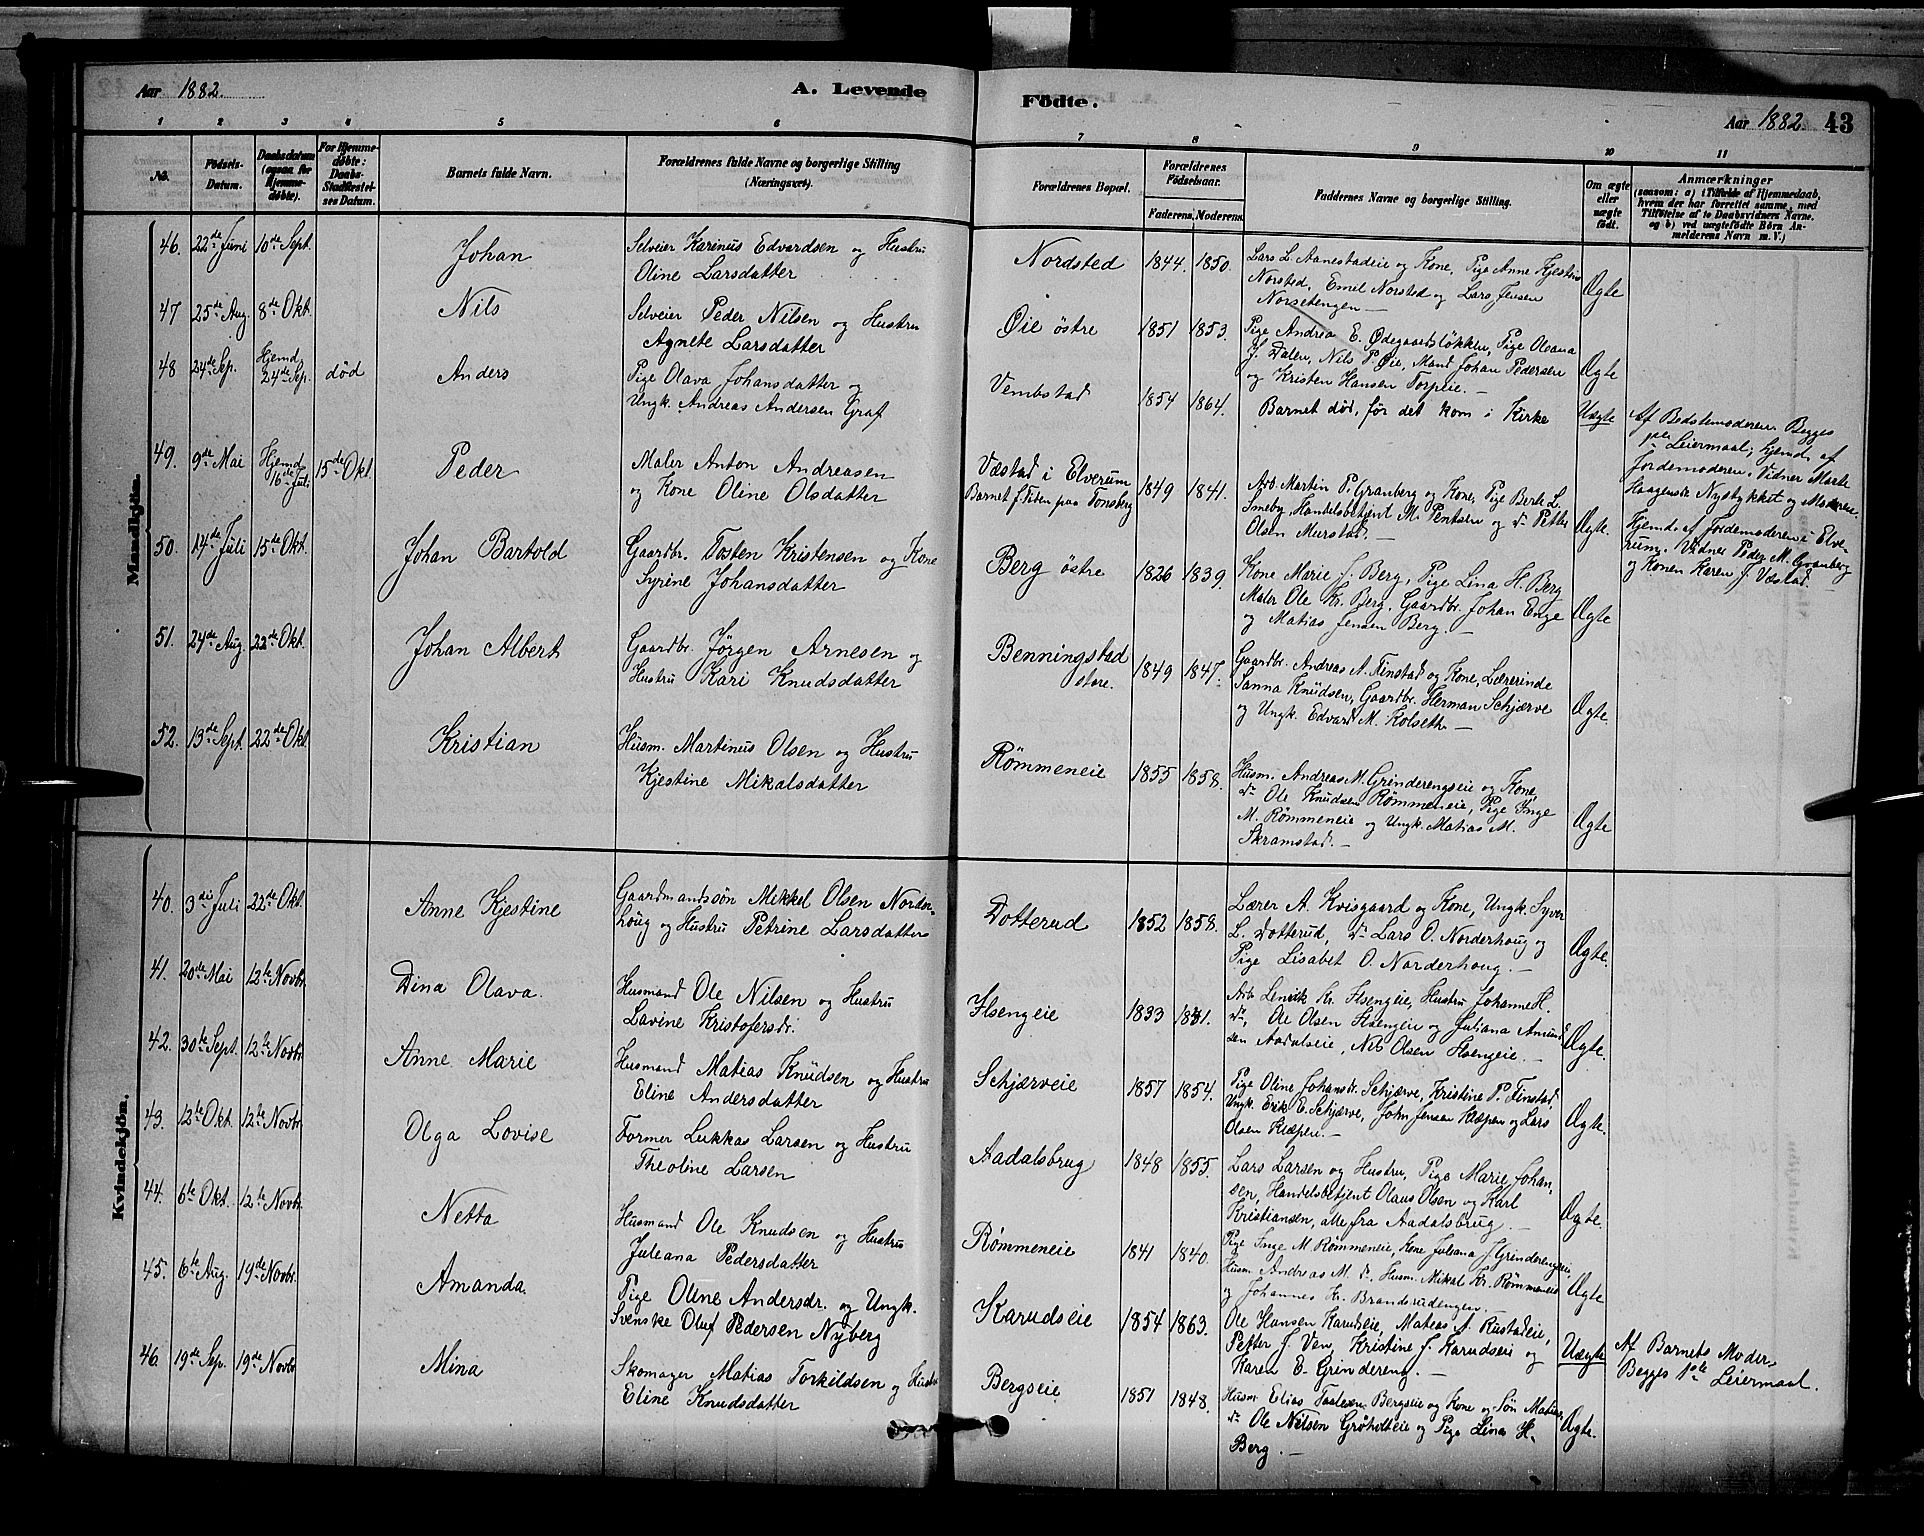 Aar 1882.
A. Levende
Födte.
Aar 1882. 43
1 2 3 4 5 6 7 8 9 10 11
No.
Födsels-Datum.
Daabsdatum (ogsaa for Hjemmedöbte).
For Hjemmedöbte: Daabs-Stadfæstelses Datum.
Barnets fulde Navn.
Forældrenes fulde Navne og borgerlige Stilling
(Næringsvei).
Forældrenes Bopæl.
Forældrenes Födselsaar.
Faderens. Moderens.
Faddernes Navne og borgerlige Stilling.
Om ægte eller uægte födt.
Anmærkninger
(saasom: a) i Tilfælde af Hjemmedaab,
hvem der har forrettet samme, med
Tilföielse af to Daabsvidners Navne.
og b) ved uægtefödte Börn An-
melderens Navn m. V.)
Mandkjön.
46. 22de Juni 10de Sept. Johan
Selveier Karinus Edvardsen og Hustru
Oline Larsdatter
Nordsted 1844. 1850.
Lars L. Aanestadeie og Kone, Pige Anne Kjestine
Norsted, Emil Norsted og Lars Jensen
Norsetengen —
Ægte
47 25de Aug. 8de Okt. Nils
Selveier Peder Nilsen og Hustru
Agnete Larsdatter
Øie östre 1851 1853.
Pige Andrea E. Ødegaardsløkken, Pige Oleana
J. Dalen, Nils P. Øie, Mand Johan Pedersen
og Kristen Hansen Torpeie. —
Ægte
48 24de Sep. Hjemd. 24de Sep. död Anders
Pige Olava Johansdatter og
Ungk. Andreas Andersen Graf
Vembstad 1854 1864.
Barnet død, før det kom i Kirke
Uægte
Af Bedstemoderen. Begges
1ste Leiermaal; hjemd. af
Jordemoderen. Vidner Marte
Haagensdr. Nystykket og Moderen.
49. 9de Mai Hjemd. 16de Juli 15de Okt. Peder
Maler Anton Andreasen
og Kone Oline Olsdatter
Væstad i Elverum
Barnet f. Uden paa Tonsberg
1849 1841.
Arb. Martin P. Granberg og Kone, Pige Berte L.
Smeby, Handelsbetjent M. Pentsen og do Petter
Olsen Murstad. —
Ægte.
Hjemd. af Jordemoderen i Elve-
rum. Vidner Peder M. Granberg
og Konen Karen J. Væstad
50. 14de Juli 15de Okt. Johan Bartold
Gaardbr. Tosten Kristensen og Kone
Syrine Johansdatter
Berg östre 1826 1839.
Kone Marie J. Berg, Pige Lina H. Berg
Maler Ole Kr. Berg, Gaardbr. Johan Enge
og Matias Jensen Berg. —
Ægte
51. 24de Aug. 22de Okt. Johan Albert
Gaardbr. Jørgen Arnesen og
Hustru Kari Knudsdatter
Benningstad
store.
1849 1847.
Gaardbr. Andreas A. Finstad og Kone, Lærerinde
Sanna Knudsen, Gaardbr. Herman Schjærve
og Ungk. Edvard M. Kolseth —
Ægte.
52. 13de Sept. 22de Okt. Kristian
Husm. Martinus Olsen og Hustru
Kjestine Mikalsdatter
Rømmeneie 1855 1858.
Husm. Andreas M. Grinderengseie og Kone,
do Ole Knudsen Rømmeneie, Pige Inge
M. Rømmeneie og Ungk. Matias M.
Skramstad. —
Ægte
Kvindekjön.
40. 3die Juli 22de Okt. Anne Kjestine
Gaardmandssøn Mikkel Olsen Norder-
houg og Hustru Petrine Larsdatter
Dotterud 1852 1858.
Lærer A. Kvisgaard og Kone, Ungk. Syver
L. Dotterud, do Lars O. Norderhoug og
Pige Lisabet O. Norderhoug. —
Ægte.
41. 20de Mai 12te Novbr. Dina Olava.
Husmand Ole Nilsen og Hustru
Lavine Kristofersdr.
Ilsengeie 1833 1831.
Arb. Lenrik Kr. Ilsengeie, Hustru Johanne H.
do, Ole Olsen Ilsengeie og Juliana Amund-
sen Aadalseie, Nils Olsen Ilsengeie. —
Ægte.
42. 30te Sept. 12te Novbr. Anne Marie
Husmand Matias Knudsen og Hustru
Eline Andersdatter
Schjærveie 1857 1854.
Pige Oline Johansdr. Schjærve, Kristine P. Finstad,
Ungk. Erik E. Schjærve, John Jensen Klæpen og Lars
Olsen Klæpen. —
Ægte.
43. 12te Okt. 12te Novbr. Olga Lovise
Former Lukkas Larsen og Hustru
Theoline Larsen
Aadalsbrug 1848 1855.
Lars Larsen og Hustru, Pige Marie Johan-
sen, Handelsbetjent Olaus Olsen og Karl
Kristiansen, alle fra Aadalsbrug. —
Ægte.
44. 6te Okt. 12te Novbr. Netta
Husmand Ole Knudsen og Hustru
Juleana Pedersdatter
Rømmeneie 1841 1840.
Pige Inge M. Rømmeneie, Kone Juliana J. Grinderengseie
Husm. Andreas M. do, Husm. Mikal Kr. Rømmeneie
og Johannes Kr. Brandsrudengen. —
Ægte
45. 6te Aug. 19de Novbr. Amanda.
Pige Oline Andersdr. og Ungk.
Svenske Oluf Pedersen Nyberg
Karudseie 1854 1863.
Ole Hansen Karudseie, Matias A. Rustadeie,
Petter J. Ven, Kristine J. Karudseie og
Karen E. Grindereng. —
Uægte
Af Barnets Moder,
Begges 1ste Leiermaal.
46. 19de Sep. 19de Novbr. Mina
Skomager Matias Torkildsen og Hustru
Eline Knudsdatter
Bergseie 1851 1848.
Husm. Elias Bergseie og Kone og Søn Matias
do Ole Nilsen Grøholteie og Pige Lina H.
Berg. —
Ægte.